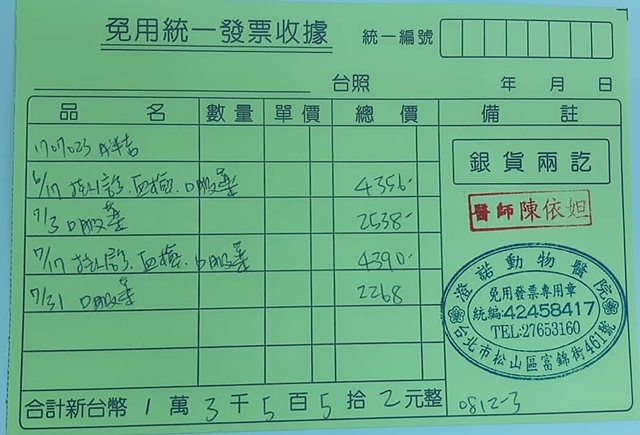 免用統一發票收據
統一編號
台照 年 月 日
品名 數量 單價 總價 備註
1707023
6/17 掛號診.血檢.口服藥 4356-
7/3 口服藥 2538-
7/17 掛號診.血檢.口服藥 4390-
7/31 口服藥 2268
銀貨兩訖
醫師陳依妲
澄諾動物醫院
免用發票專用章
統編:42458417
TEL:27653160
台北市松山區富錦街461號
合計新台幣 1 萬 3 千 5 百 5 拾 2 元整
0812-3